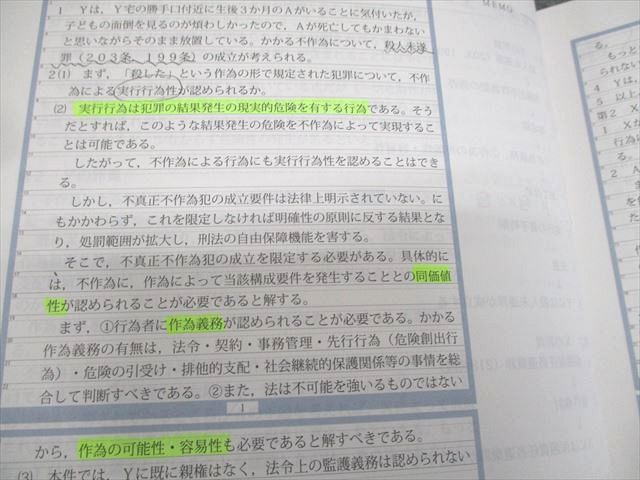 MEMO
1 Yは，Y宅の勝手口付近に生後3か月のAがいることに気付いたが，
子どもの面倒を見るのが煩わしかったので，Aが死亡してもかまわない
と思いながらそのまま放置している。かかる不作為について，殺人未遂
罪（203条，199条）の成立が考えられる。
2(1) まず，「殺した」という作為の形で規定された犯罪について，不作
為による実行行為性が認められるか。
(2) 実行行為は犯罪の結果発生の現実的危険を有する行為である。そう
だとすれば，このような結果発生の危険を不作為によって実現するこ
とは可能である。
したがって，不作為による行為にも実行行為性を認めることはでき
る。
しかし，不真正不作為犯の成立要件は法律上明示されていない。に
もかかわらず，これを限定しなければ明確性の原則に反する結果とな
り，処罰範囲が拡大し，刑法の自由保障機能を害する。
そこで，不真正不作為犯の成立を限定する必要がある。具体的に
は，不作為に，作為によって当該構成要件を発生することとの同価値
性が認められることが必要であると解する。
まず，①行為者に作為義務が認められることが必要である。かかる
作為義務の有無は，法令・契約・事務管理・先行行為（危険創出行
為）・危険の引受け・排他的支配・社会継続的保護関係等の事情を総
合して判断すべきである。②また，法は不可能を強いるものではない
1
から，作為の可能性・容易性も必要であると解すべきである。
(3) 本件では，Yに既に親権はなく，法令上の監護義務は認められない